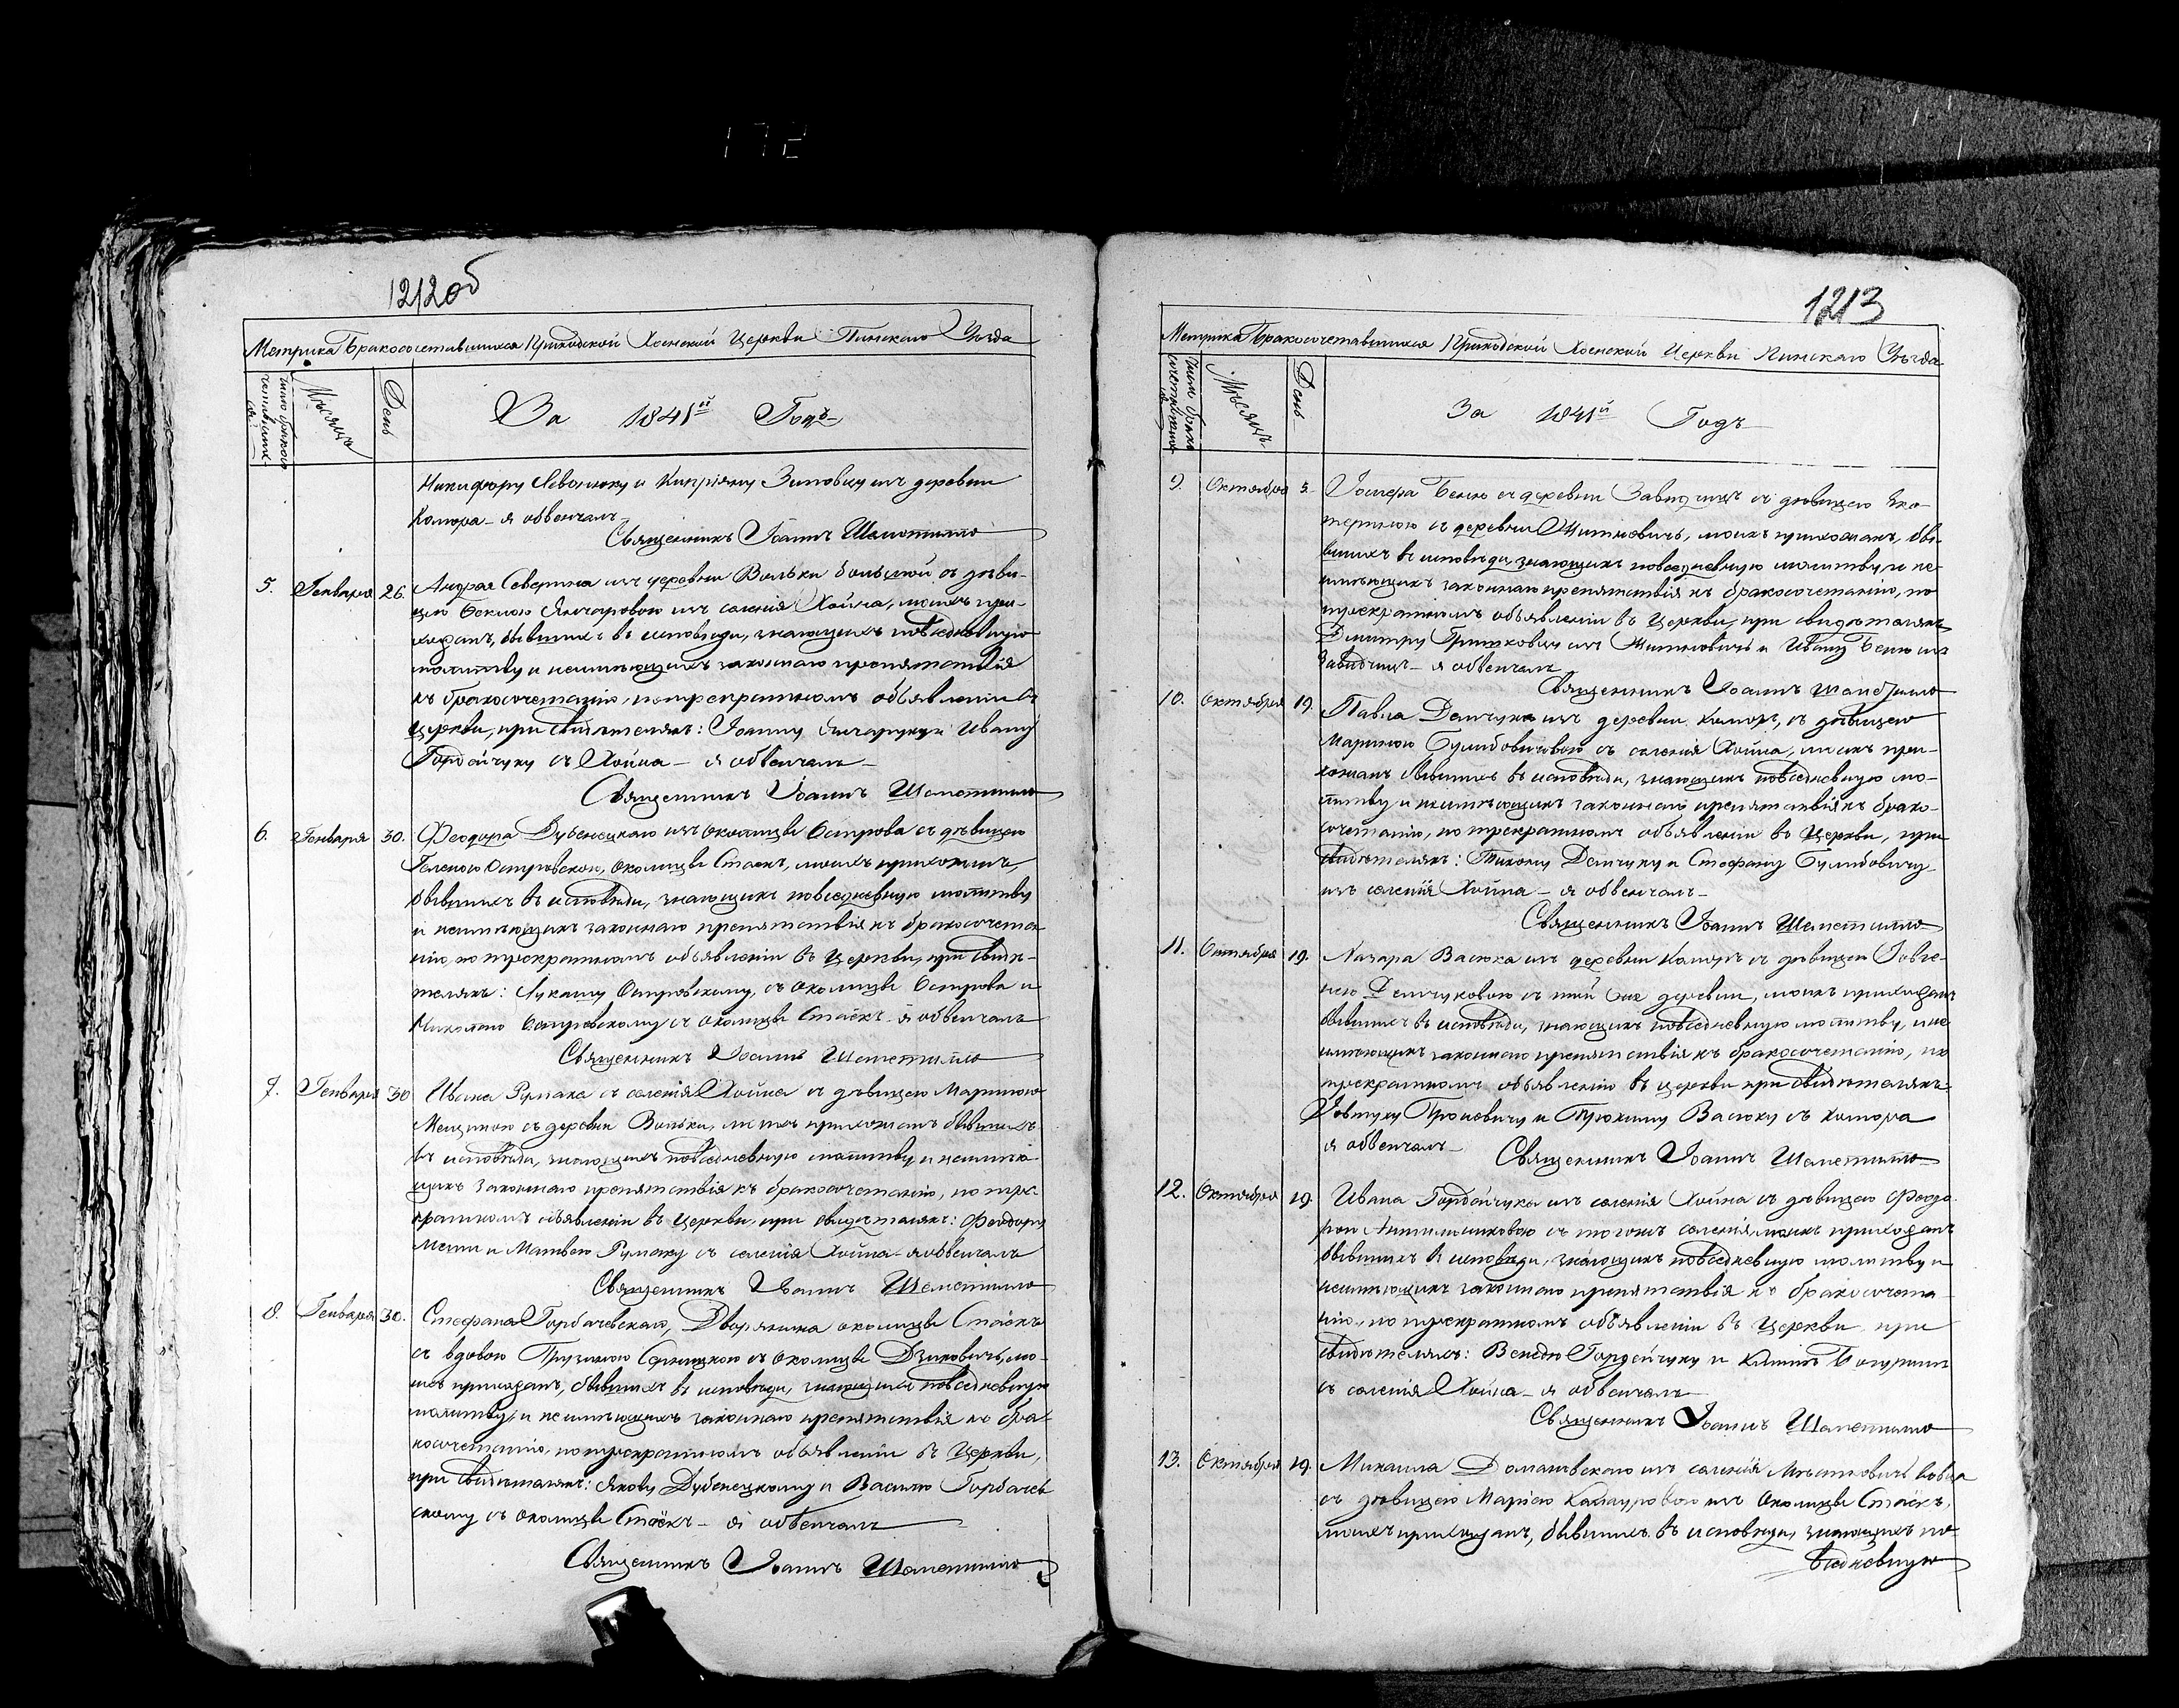 172
1212об
Метрика Бракосочетавшихся Приходской Хоенской Церкви Пинскаго Уезда
число бракосочетавшихся
Мѣсяцъ
День
За 1841й Годъ
Никифору Левонюку и Кипріяну Зиновичу изъ деревни
Комора - я обвенчалъ
Священникъ Іоаннъ Шеметилло
5. Генваря 26. Андрея Северина изъ деревни Вольки большой съ дѣви-
цею Янчаровою изъ селенія Хойна, моихъ при-
хожанъ, бывшихъ въ исповѣди, знающихъ повседневную
молитву и неимѣющихъ законнаго препятствія
къ бракосочетанію, по трекратномъ объявленіи въ
церкви, при свидѣтеляхъ: Іоанну Янчаруку и Ивану
Гордейчуку съ Хойна - я обвенчалъ
Священникъ Іоаннъ Шеметилло
6. Генваря 30. Феодора Дубенецкаго изъ околицы Острова съ дѣвицею
Геленою Островскою, околицы Стаекъ, моихъ прихожанъ,
бывшихъ въ исповѣди, знающихъ повседневную молитву
и неимѣющихъ законнаго препятствія къ бракосочета-
нію, по трекратномъ объявленіи въ Церкви, при свидѣ-
теляхъ: Лукашу Островскому, съ околицы Острова и
Николаю Островскому съ околицы Стаёкъ - я обвенчалъ
Священникъ Іоаннъ Шеметилло
7. Генваря 30 Ивана Румака съ селенія Хойна съ дѣвицею Мариною
съ деревни Вольки, моихъ прихожанъ бывшихъ
въ исповѣди, знающихъ повседневную молитву и неимѣю-
щихъ законнаго препятствія къ бракосочетанію, по трек-
ратномъ объявленіи въ Церкви, при свидѣтеляхъ: Феодору
и Матвею Румаку съ селенія Хойна - я обвенчалъ
Священникъ Іоаннъ Шеметилло
8. Генваря 30. Стефана Горбачевскаго, Дворянина околицы Стаёкъ
съ вдовою съ околицы Дзиковичъ, мо-
ихъ прихожанъ, бывшихъ въ исповѣди, знающихъ повседневную
молитву, и неимѣющихъ законнаго препятствія къ бра-
косочетанію, по трекратномъ объявленіи въ Церкви,
при свидѣтеляхъ: Якову Дубенецкому и Василю Горбачев-
скому съ околицы Стаёкъ - я обвенчалъ
Священникъ Іоаннъ Шеметилло
1213
Метрика Бракосочетавшихся Приходской Хоенской Церкви Пинскаго Уѣзда
Число бракосочетавшихся
Мѣсяцъ
День
За 1841й Годъ
9. Октября 5. Іосифа Беню съ деревни Завидчицъ съ дѣвицею Ека-
териною съ деревни Житновичъ, моихъ прихожанъ, бы-
вшихъ въ исповѣди, знающихъ повседневную молитву, и не-
имѣющихъ законнаго препятствія къ бракосочетанію, по
трекратномъ объявленіи въ Церкви, при свидѣтеляхъ
Дмитру Гришковцу изъ Житновичъ и Ивану Беню изъ
Завидчицъ - я обвенчалъ
Священникъ Іоаннъ Шеметилло
10. Октября 19. Павла Демчука изъ деревни Коморъ, съ дѣвицею
Мариною Булибовичовою съ селенія Хойна, моихъ при-
хожанъ бывшихъ въ исповѣди, знающихъ повседневную мо-
литву и неимѣющихъ законнаго препятствія къ брако-
сочетанію, по трекратномъ объявленіи въ Церкви, при
свидѣтеляхъ: Тихону Демчуку и Стефану Булибовичу
изъ селенія Хойна - я обвенчалъ
Священникъ Іоаннъ Шеметилло
11. Октября 19. Назара Васюка изъ деревни Коморъ съ дѣвицею
Демчуковою съ той же деревни, моихъ прихожанъ
бывшихъ въ исповѣди, знающихъ повседневную молитву, и не-
имѣющихъ законнаго препятствія къ бракосочетанію, по
трекратномъ объявленію въ церкви при свидѣтеляхъ:
Іовтуху Проневичу и Васюку съ Комора
я обвенчалъ
Священникъ Іоаннъ Шеметилло
12. Октября 19 Ивана Гордейчука изъ селенія Хойна съ дѣвицею Феодо-
рою съ тогожъ селенія, моихъ прихожанъ
бывшихъ въ исповѣди, знающихъ повседневную молитву и
неимѣющихъ законнаго препятствія къ бракосочета-
нію, по трекратномъ объявленіи въ Церкви при
свидѣтеляхъ: Гордейчуку и
съ селенія Хойна - я обвенчалъ
Священникъ Іоаннъ Шеметилло
13. Октября 19. Михаила Домашевскаго изъ селенія вдовца
съ дѣвицею Маріею изъ Околицы Стаёкъ,
моихъ прихожанъ, бывшихъ въ исповѣди, знающихъ по-
вседневную